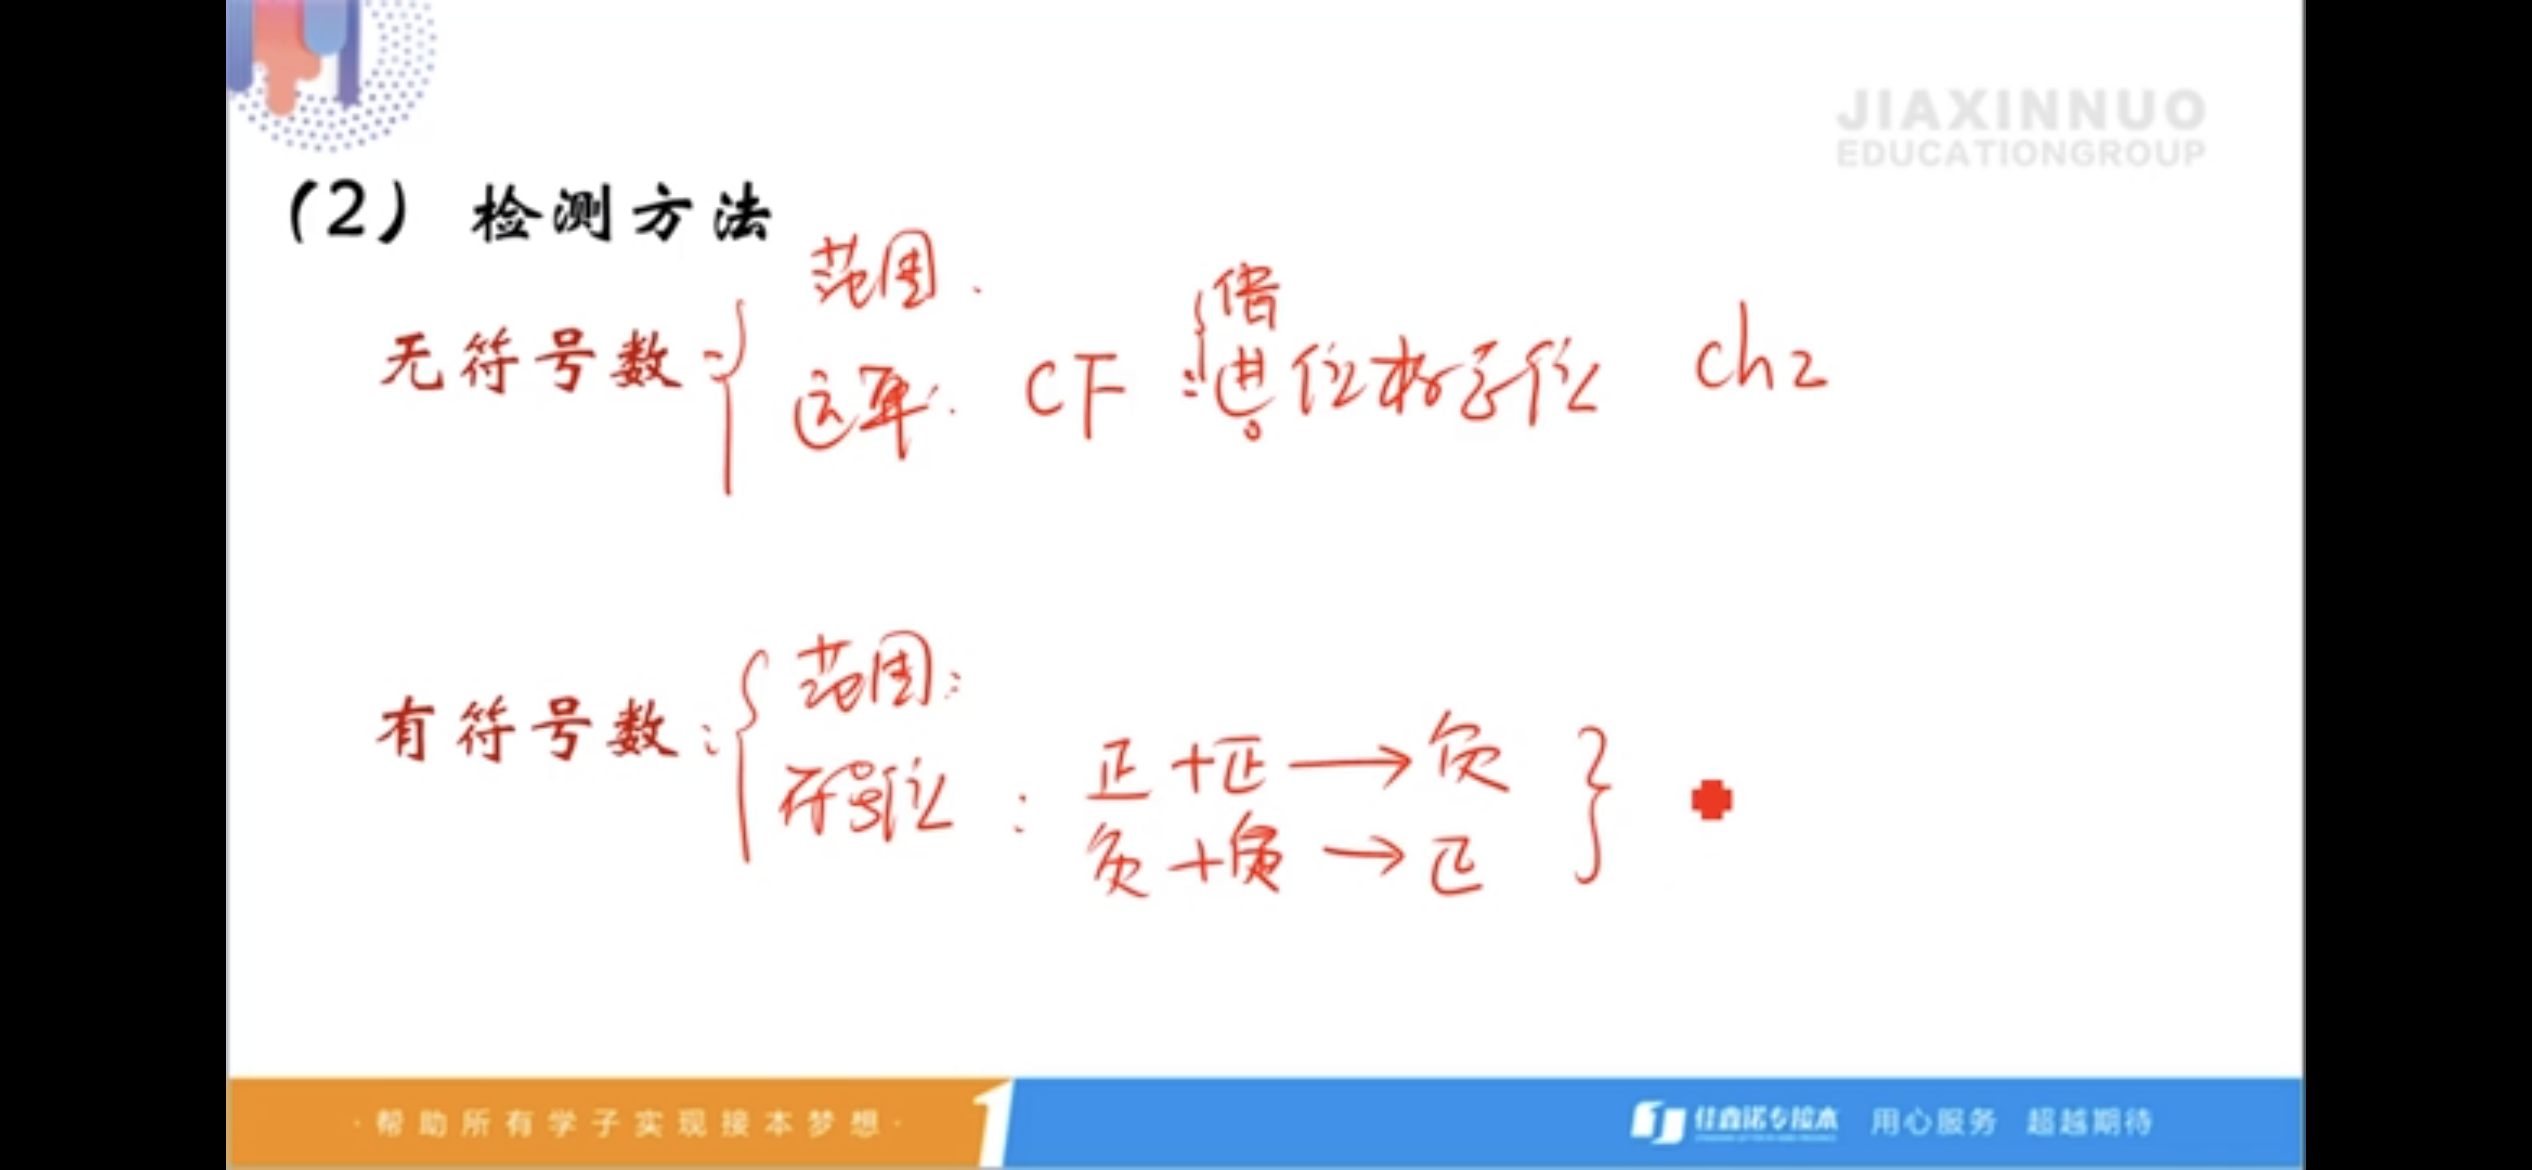 JIAXINNUO
EDUCATIONGROUP
（2）检测方法
无符号数：
范围.
运算: CF : 借
进位标志位 ch2
有符号数：
范围:
符号位 : 正+正→负
负+负→正
·帮助所有学子实现接本梦想·
1
佳鑫诺专接本 用心服务 超越期待